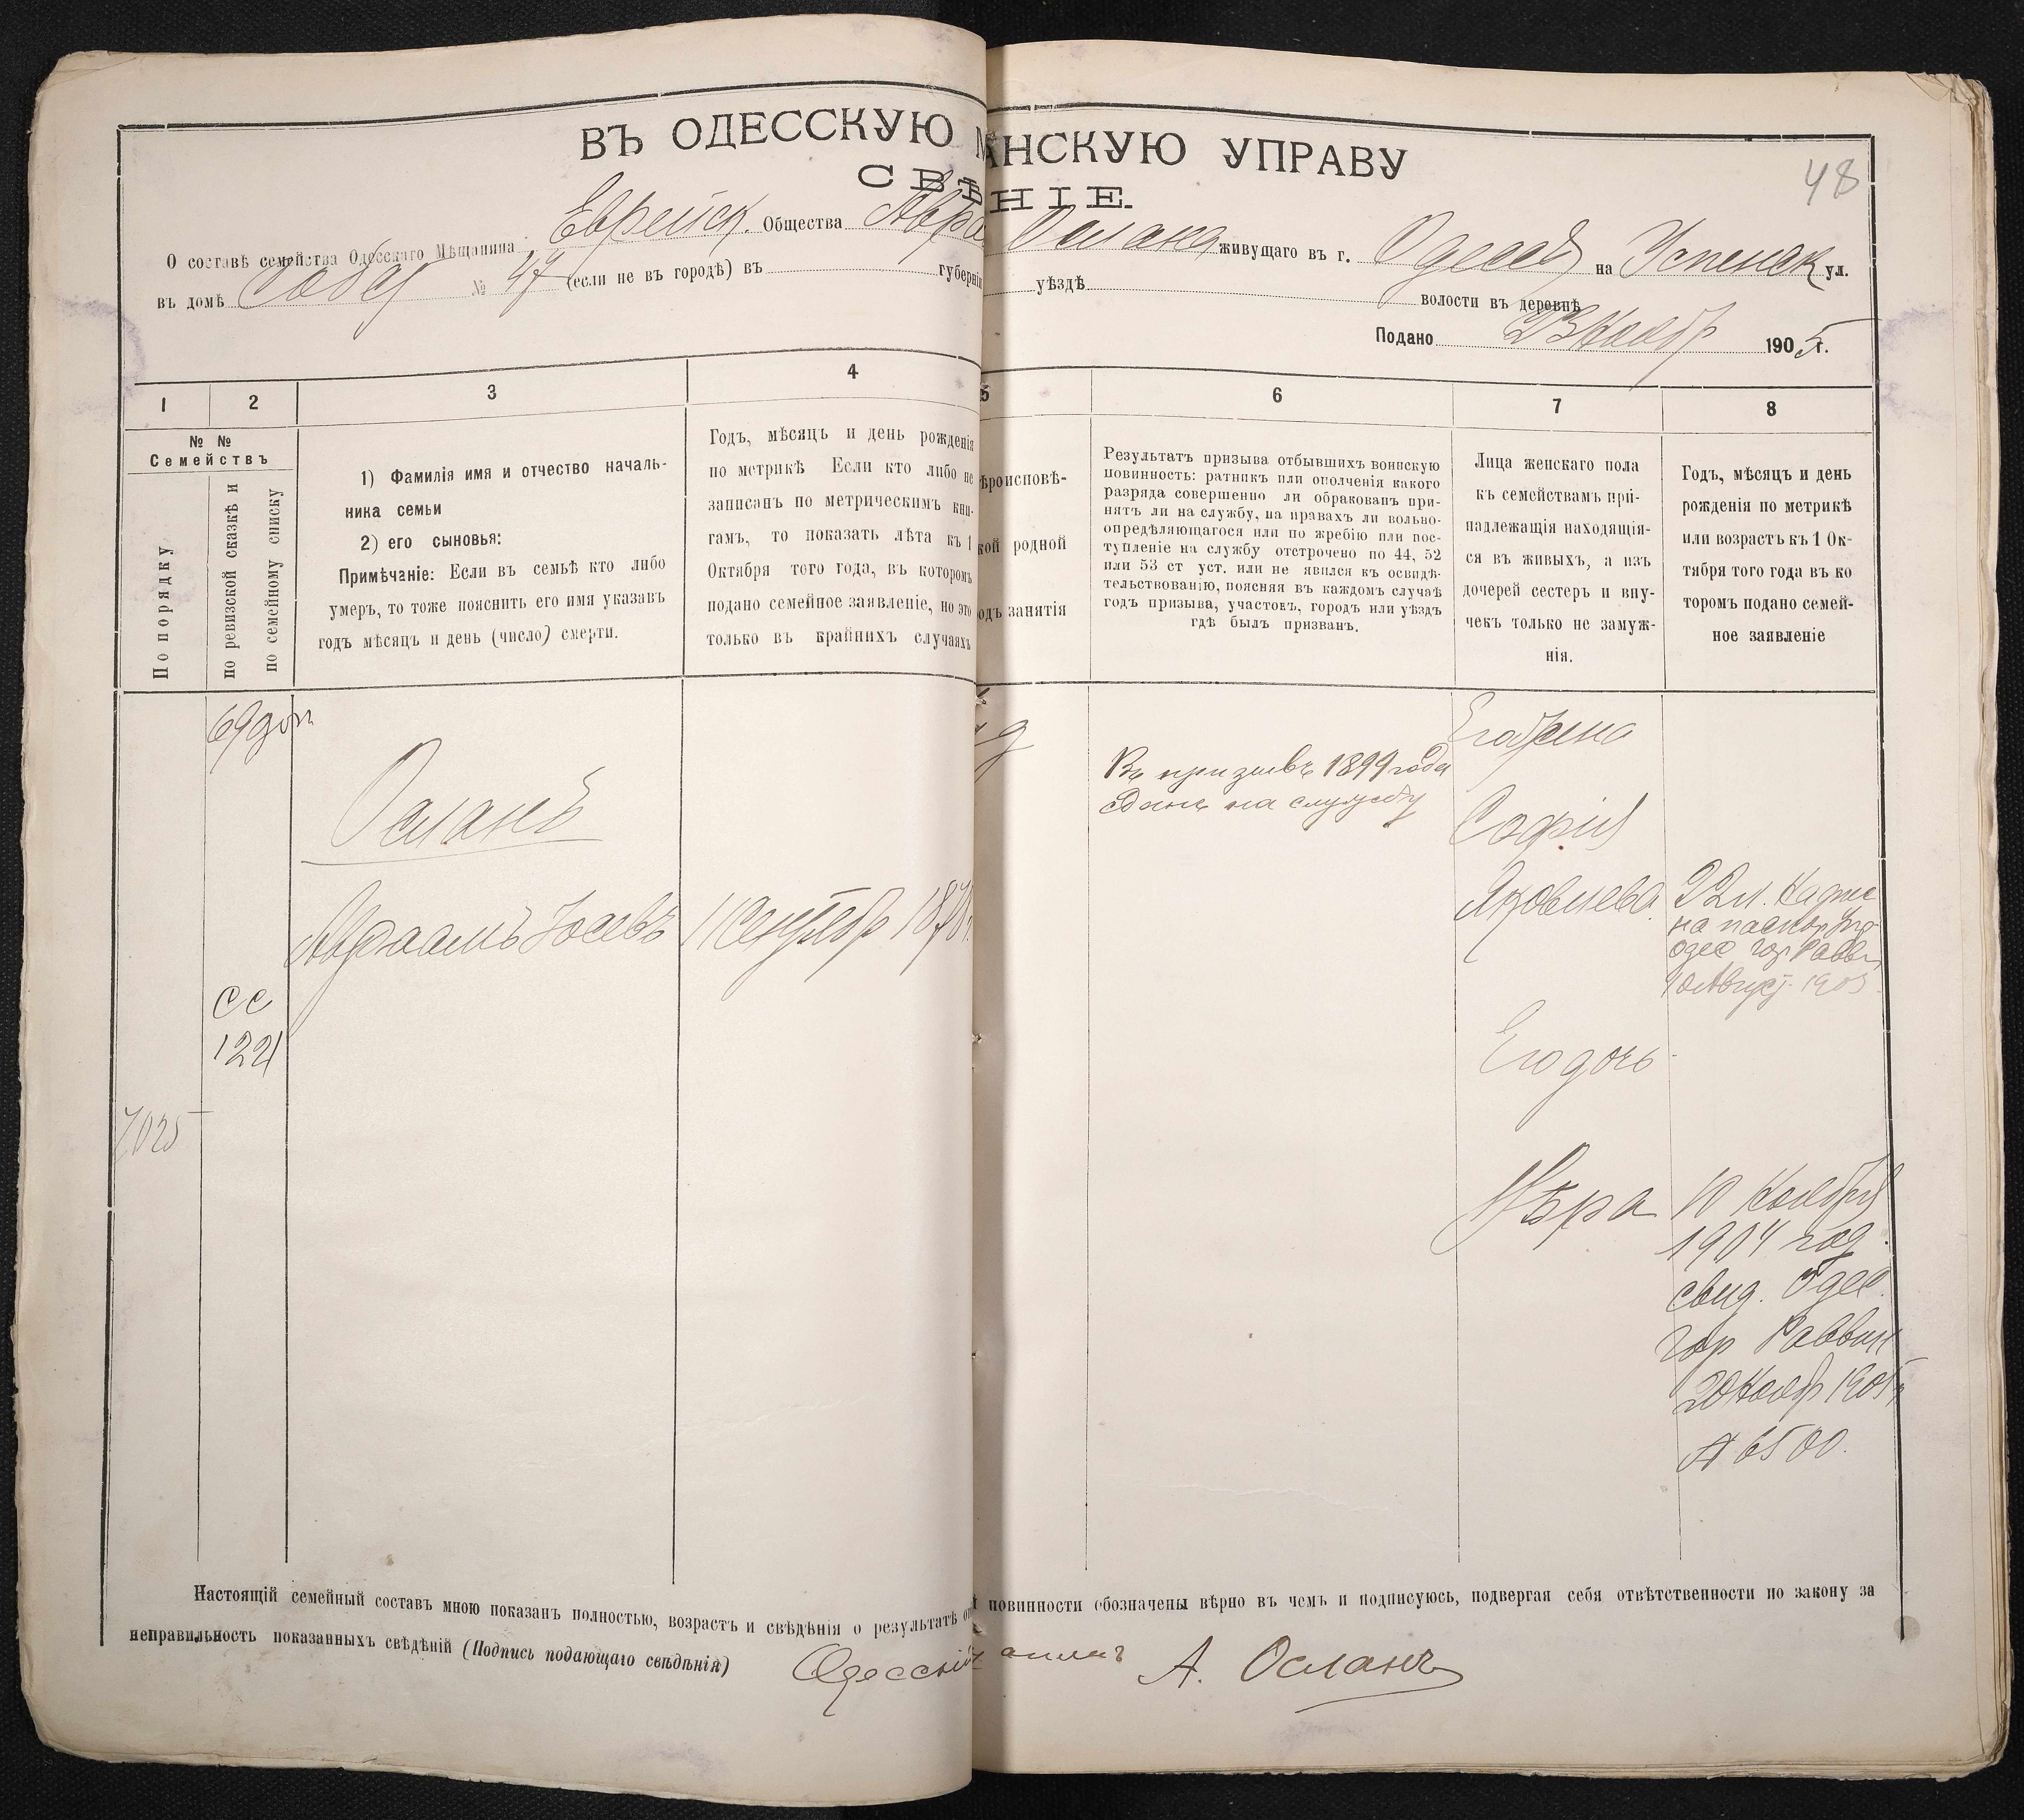 48
ВЪ ОДЕССКУЮ М АНСКУЮ УПРАВУ
СВѢ НІЕ.
О составѣ семейства Одесскаго Мѣщанина Еврейск. Общества Авра Ослана живущаго въ г. Одессѣ на Успенск ул.
въ домѣ № 47 (если не въ городѣ) въ губерніи уѣздѣ волости въ деревнѣ
Подано 23 Ноябр 1905 г.
1 2 3 4 5 6 7 8
№ №
Семействъ
По порядку
по ревизской сказкѣ и
по семейному списку
1) Фамилія имя и отчество началь-
ника семьи
2) его сыновья:
Примѣчаніе: Если въ семьѣ кто либо
умеръ, то тоже пояснить его имя указавъ
годъ мѣсяцъ и день (число) смерти.
Годъ, мѣсяцъ и день рожденія
по метрикѣ Если кто либо не
записанъ по метрическимъ кни-
гамъ, то показать лѣта къ 1
Октября того года, въ которомъ
подано семейное заявленіе, но это
только въ крайнихъ случаяхъ
ѣроисповѣ-
кой родной
одъ занятія
Результатъ призыва отбывшихъ воинскую
повинность: ратникъ или ополченія какого
разряда совершенно ли обракованъ при-
нятъ ли на службу, на правахъ ли вольно-
опредѣляющагося или по жребію или пос-
тупленіе на службу отстрочено по 44, 52
или 53 ст уст. или не явился къ освидѣ-
тельствованію, поясняя въ каждомъ случаѣ
годъ призыва, участокъ, городъ или уѣздъ
гдѣ былъ призванъ.
Лица женскаго пола
къ семействамъ при-
надлежащія находящія-
ся въ живыхъ, а изъ
дочерей сестеръ и вну-
чекъ только не замуж-
нія.
Годъ, мѣсяцъ и день
рожденія по метрикѣ
или возрастъ къ 1 Ок-
тября того года въ ко
торомъ подано семей-
ное заявленіе
69 доп
Осланъ
Авраамъ Іосевъ
1 Сентябр 1878 г.
сс
1221
7025
Въ призывѣ 1899 года
сданъ на службу
Его жена
Софія
Яковлева
22 л. Надпис
на паспорт
Одес гор Равви
Август. 1905
Его дочь
Вѣра
10 Ноября
1904 год.
свид. Одес.
гор Раввин
20 Ноябр 1905 г
№ 6500.
Настоящій семейный составъ мною показанъ полностью, возрастъ и свѣдѣнія о результатѣ от й повинности обозначены вѣрно въ чемъ и подписуюсь, подвергая себя отвѣтственности по закону за
неправильность показанныхъ свѣдѣній (Подпись подающаго свѣдѣнія) Одесскій А. Осланъ